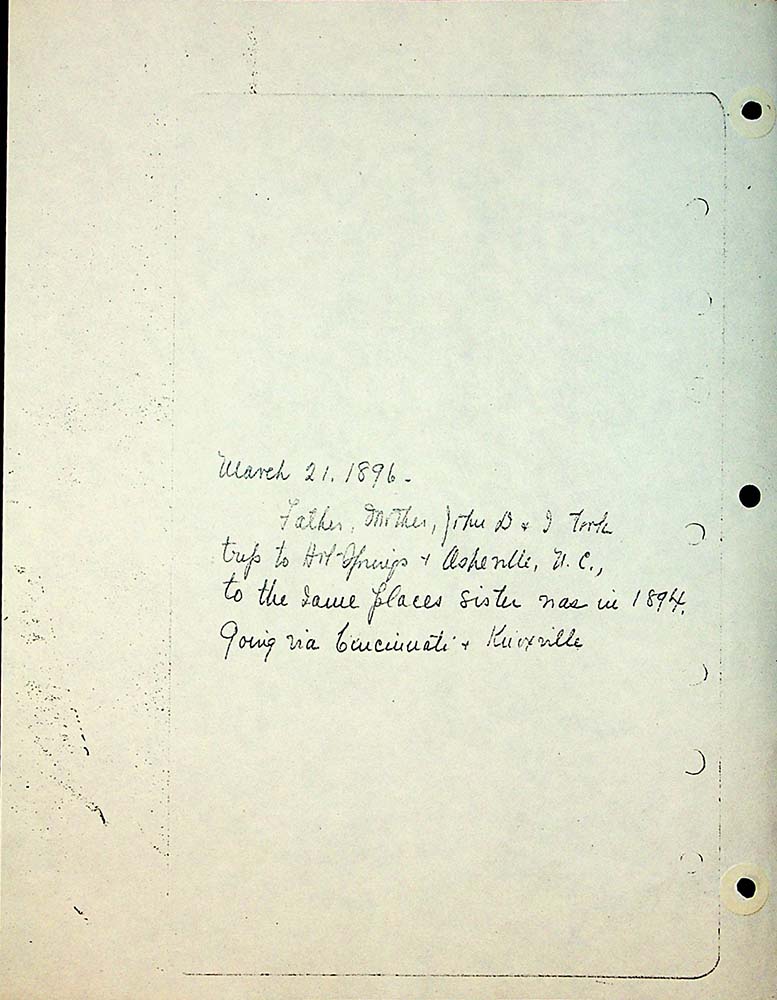 March 21. 1896.
Father, Mother, John D + I took
trip to Hot Springs + Asheville, N.C.,
to the same places sister was in 1894.
Going via Cincinnati + Knoxville